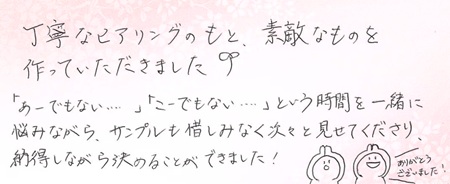 丁寧なヒアリングのもと、素敵なものを
作っていただきました
「あーでもない……」「こーでもない……」という時間を一緒に
悩みながら、サンプルも惜しみなく次々と見せてくださり、
納得しながら決めることができました！
ありがとう
ございました！